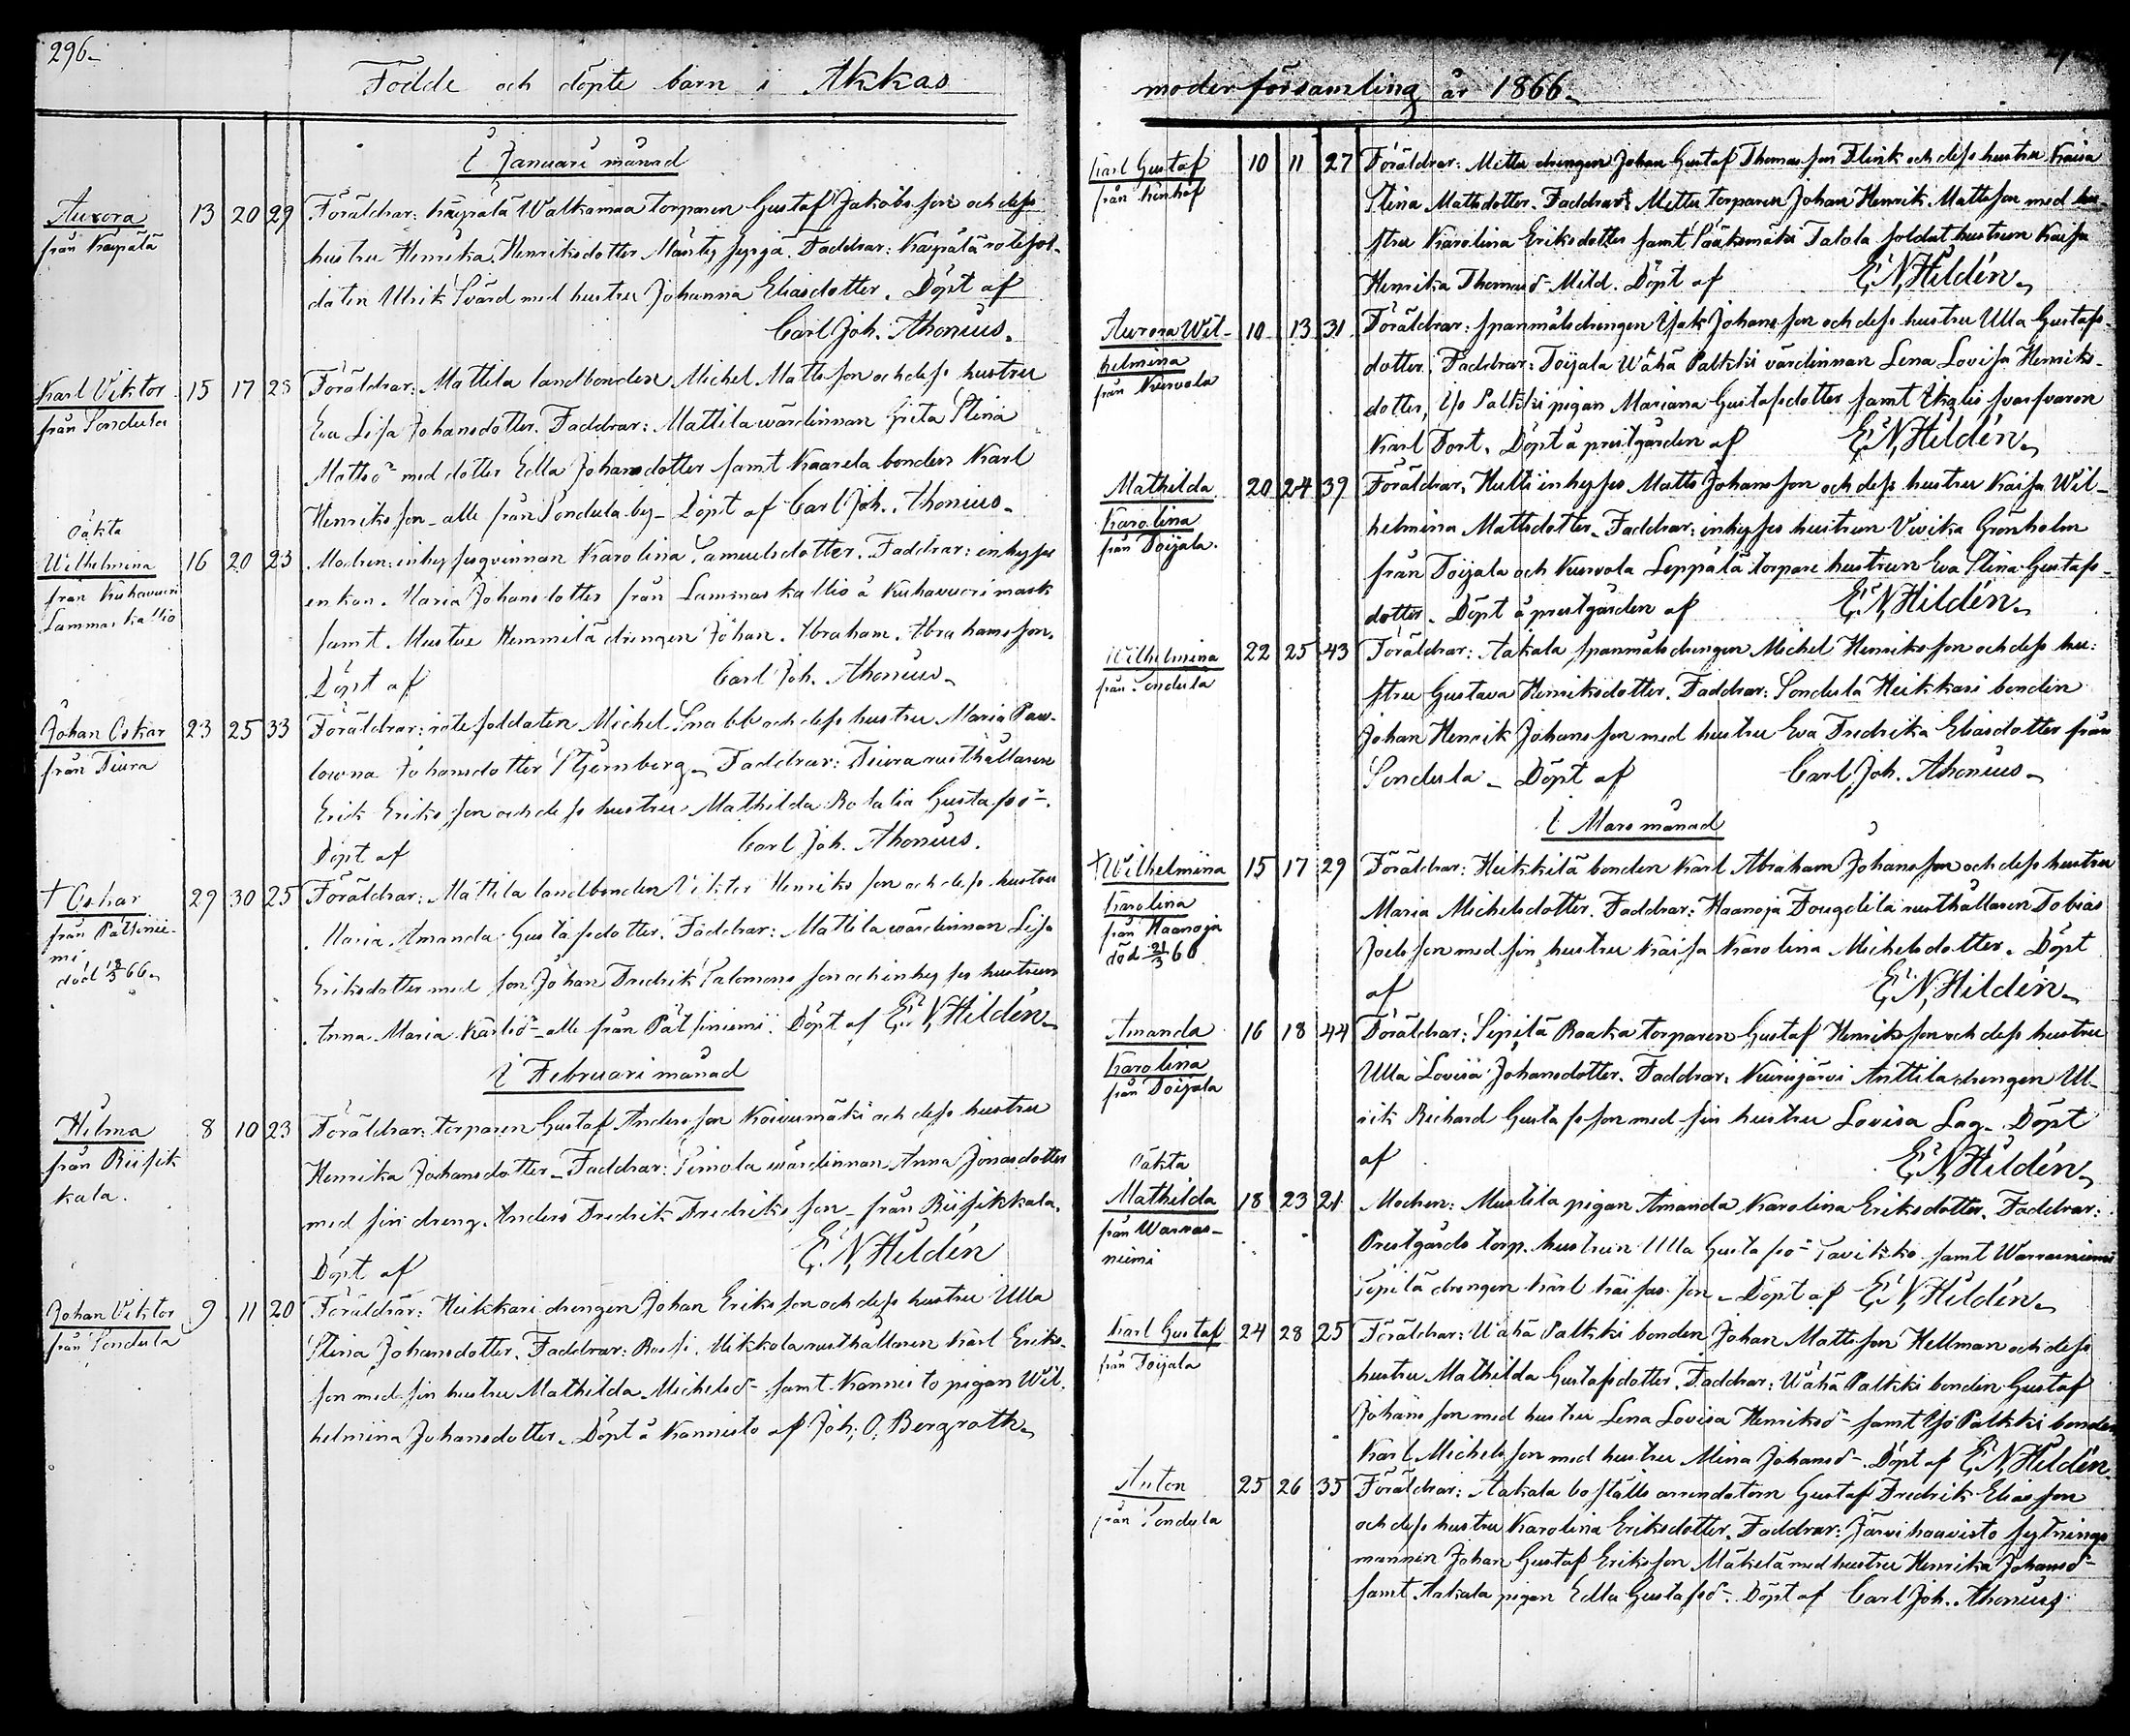 296.
Födde och döpte barn i Akkas
I Januari månad
Aurora
från Käypälä
13 20 29
Föräldrar: Käypälä Walkamaa torparen Gustaf Jakobsson och dess
hustru Henrika Henriksdotter Mäntysyrjä. Faddrar: Käypälä rotesol-
daten Ulrik Svärd med hustru Johanna Eliasdotter. Döpt af
Carl Joh. Ahonius.
Karl Viktor
från Sondula
15 17 23
Föräldrar: Mattila landbonden Michel Mattsson och dess hustru
Eva Lisa Johansdotter. Faddrar: Mattila wärdinnan Greta Stina
Mattsd med dotter Edla Johansdotter samt Kaarela bonden Karl
Henriksson - alle från Sondula by - Döpt af Carl Joh. Ahonius.
Oäkta
Wilhelmina
från Kuhavuori
Lammaskallio
16 20 23
Modren: inhyses qvinnan Karolina Samuelsdotter. Faddrar: inhyses
enkan Maria Johansdotter från Lammaskallio å Kuhavuori mark
samt Mustue Hemmilä drengen Johan Abraham Abrahamsson.
Döpt af Carl Joh. Ahonius.
Johan Oskar
från Tiura
23 25 33
Föräldrar: rote soldaten Michel Snabb och dess hustru Maria Paw-
lowna Johansdotter Stjernberg. Faddrar: Tiura rusthållaren
Erik Eriksson och dess hustru Mathilda Rosalia Gustafsd.
Döpt af Carl Joh. Ahonius.
† Oskar
från Pätsinie-
mi,
död 18/3 66.
29 30 25
Föräldrar: Mattila landbonden Viktor Henriksson och dess hustru
Maria Amanda Gustafsdotter. Faddrar: Mattila wärdinnan Lisa
Eriksdotter med son Johan Fredrik Salomonsson och inhyses hustrun
Anna Maria Karlsd - alle från Pätsiniemi. Döpt af E. N. Hildén.
I Februari månad
Hilma
från Riisik
kala.
8 10 23
Föräldrar: torparen Gustaf Andersson Koivumäki och dess hustru
Henrika Johansdotter. Faddrar: Simola wärdinnan Anna Jonasdotter
med sin dreng Anders Fredrik Fredriksson - från Riisikkala.
Döpt af E. N. Hildén
Johan Viktor
från Sondula
9 11 20
Föräldrar: Heikkari drengen Johan Eriksson och dess hustru Ulla
Stina Johansdotter. Faddrar: Rossi Mikkola rusthållaren Karl Eriks-
son med sin hustru Mathilda Michelsd - samt Kannisto pigan Wil-
helmina Johansdotter. Döpt å Kannisto af Joh. O. Bergroth.
moder församling år 1866.
Karl Gustaf
från
10 11 27
Föräldrar: Mettu drengen Johan Gustaf Thomasson Flink och dess hustru Kaisa
Stina Mattsdotter. Faddrar: Mettu torparen Johan Henrik Mattsson med hu-
stru Karolina Eriksdotter samt Sääksmäki Talola soldat hustrun Kaisa
Henrika Thomasd Mild. Döpt af E. N. Hildén.
Aurora Wil-
helmina
från Kurvola
10 13 31
Föräldrar: spanmåls drengen Isak Johansson och dess hustru Ulla Gustafs-
dotter. Faddrar: Toijala Wähä Palkki värdinnan Lena Lovisa Henriks-
dotter, Iso Palkki pigan Mariana Gustafsdotter samt
Karl Fort. Döpt å prestgården af E. N. Hildén.
Mathilda
Karolina
från Toijala.
20 24 39
Föräldrar: Hulli inhyses Matts Johansson och dess hustru Kaisa Wil-
helmina Mattsdotter. Faddrar: inhyses hustrun Vivika Grönholm
från Toijala och Kurvola Leppälä torpare hustrun Eva Stina Gustafs-
dotter. Döpt å prestgården af E. N. Hildén.
Wilhelmina
från Sondula
22 25 43
Föräldrar: Aakala spanmåls drengen Michel Henriksson och dess hu-
stru Gustava Henriksdotter. Faddrar: Sondula Heikkari bonden
Johan Henrik Johansson med hustru Eva Fredrika Eliasdotter från
Sondula - Döpt af Carl Joh. Ahonius.
I Mars månad
† Wilhelmina
Karolina
från Haanoja
död 21/3 66
15 17 29
Föräldrar: Heikkilä bonden Karl Abraham Johansson och dess hustru
Maria Michelsdotter. Faddrar: Haanoja rusthållaren Tobias
Joelsson med sin hustru Kaisa Karolina Michelsdotter. Döpt
af E. N. Hildén.
Amanda
Karolina
från Toijala
16 18 44
Föräldrar: Sipilä Raaka torparen Gustaf Henriksson och dess hustru
Ulla Lovisa Johansdotter. Faddrar: Kurisjärvi Anttila drengen Ul-
rik Richard Gustafsson med sin hustru Lovisa Lag. Döpt
af E. N. Hildén.
Oäkta
Mathilda
från Warras-
niemi
18 23 21
Modren: Mustila pigan Amanda Karolina Eriksdotter. Faddrar:
Prestgårds torp. hustrun Ulla Gustafsd Savikko samt Warrasniemi
Sipilä drengen Karl - Döpt af E. N. Hildén.
Karl Gustaf
från Toijala
24 28 25
Föräldrar: Wähä Palkki bonden Johan Mattsson Hellman och dess
hustru Mathilda Gustafsdotter. Faddrar: Wähä Palkki bonden Gustaf
Johansson med hustru Lena Lovisa Henriksd - samt Iso Palkki bonden
Karl Michelsson med hustru Mina Johansd. Döpt af E. N. Hildén.
Anton
från Sondula
25 26 35
Föräldrar: Aakala boställs arrendatorn Gustaf Fredrik Eliasson
och dess hustru Karolina Eriksdotter. Faddrar: Järvihaavisto sytnings
mannen Johan Gustaf Eriksson Mäkelä med hustru Henrika Johansd
samt Aakala pigan Edla Gustafsd. Döpt af Carl Joh. Ahonius